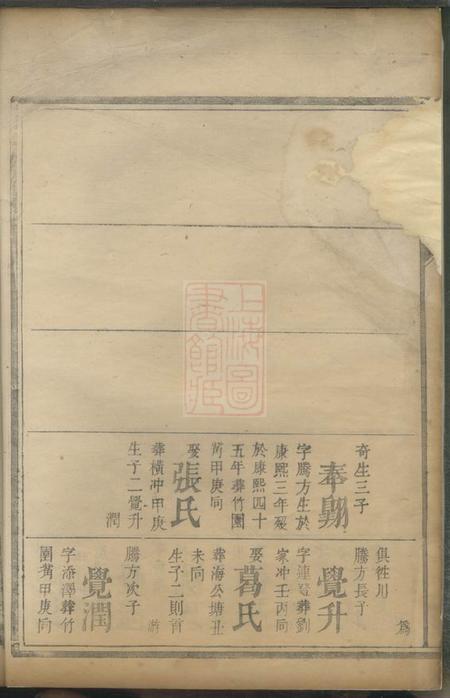 奇生三子
奉朝
字騰方生於
康熙三年歿
於康熙四十
五年葬竹園
背甲庚向
娶張氏
葬橫冲甲庚
生子二覺升
潤
為
俱往川
騰方長子
覺升
葬劉
家冲壬丙向
娶葛氏
葬海公塘丑
未向
生子二則首
游
騰方次子
覺潤
字添澤葬竹
園背甲庚向
上海圖書館藏